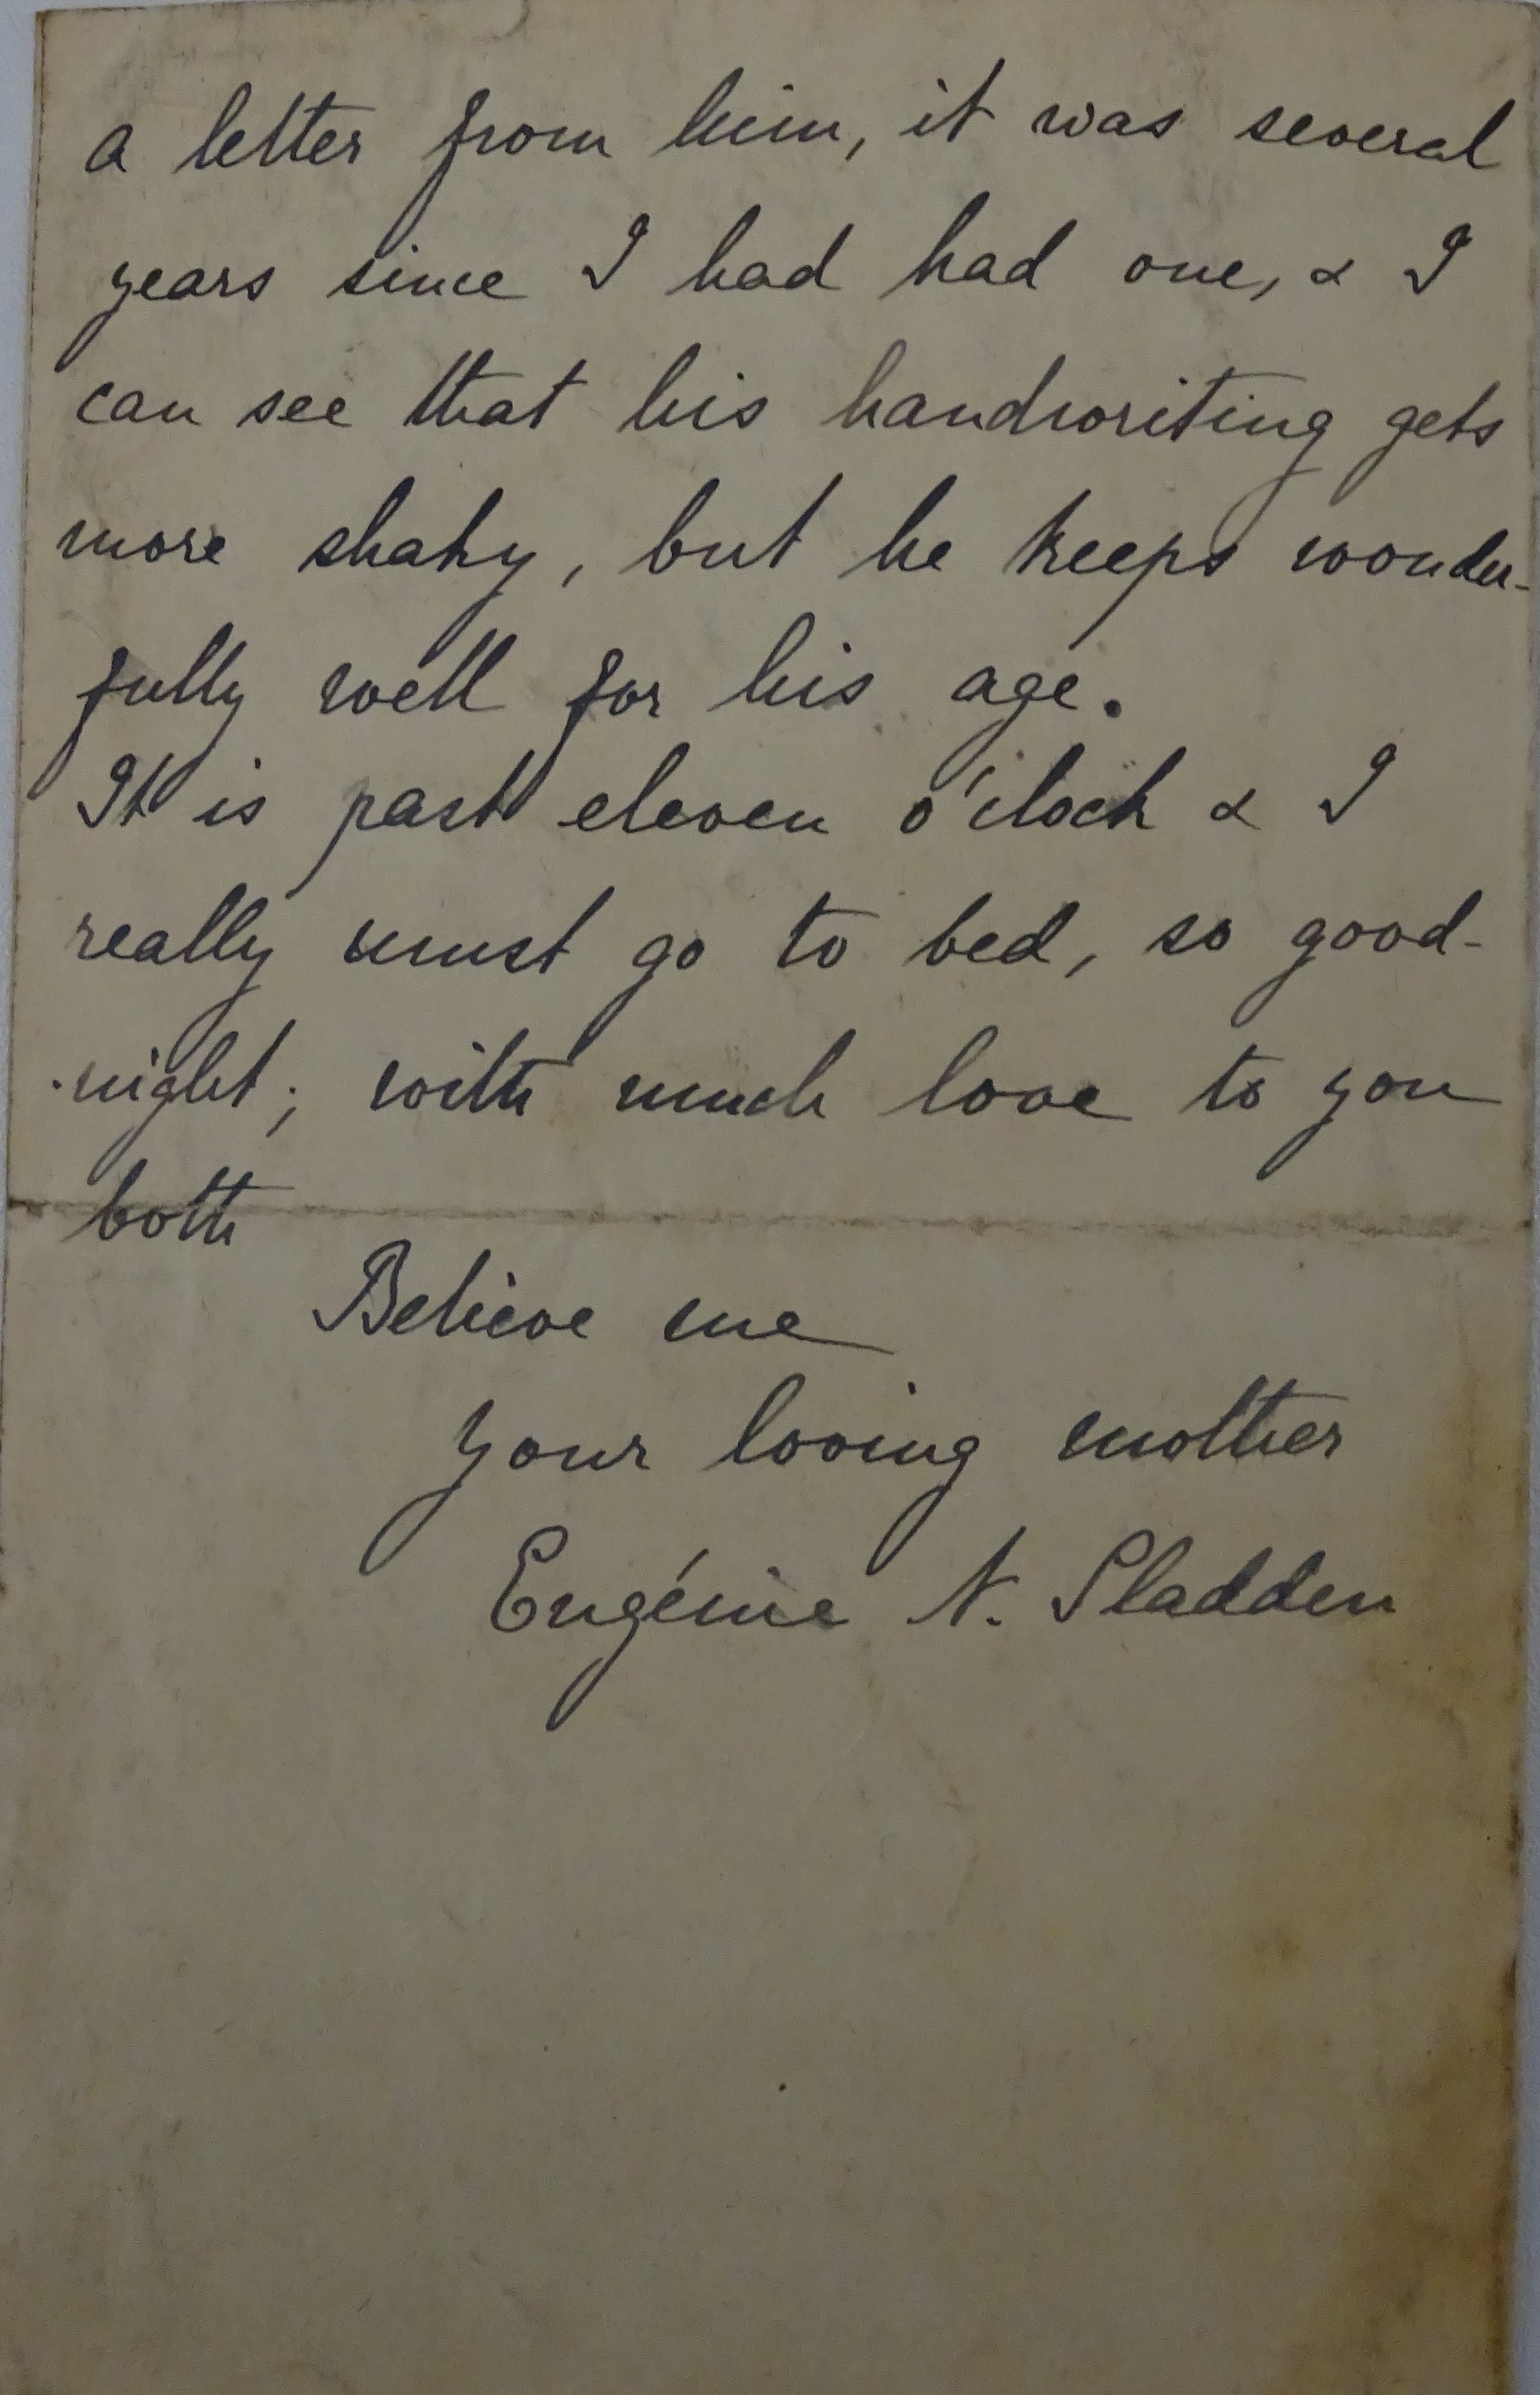 a letter from him, it was several
years since I had had one, & I
can see that his handwriting gets
more shaky, but he keeps wonder-
fully well for his age.
It is past eleven o'clock & I
really must go to bed, so good-
night; with much love to you
both
Believe me
your loving mother
Eugénie N. Sladden